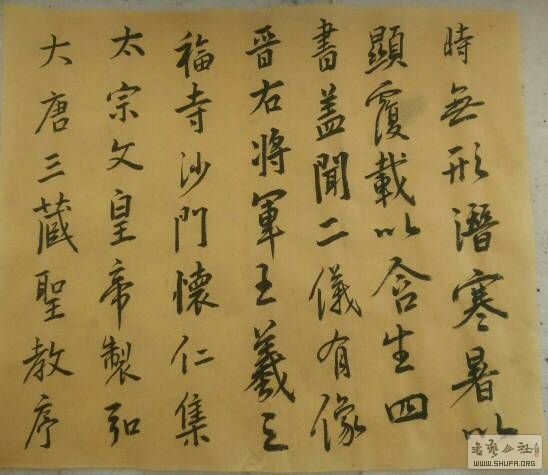 大唐三藏聖教序
太宗文皇帝製弘
福寺沙門懷仁集
晉右將軍王羲之
書蓋聞二儀有像
顯覆載以含生四
時無形潛寒暑以
书艺公社
WWW.SHUFA.ORG